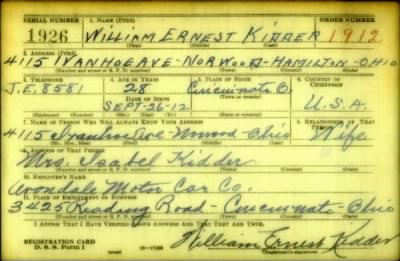 SERIAL NUMBER 1. NAME (Print)
1926 WILLIAM ERNEST KIDDER 1912
(First) (Middle) (Last)
2. ADDRESS (Print)
4115 IVANHOE AVE - NORWOOD - HAMILTON - OHIO
3. TELEPHONE 4. AGE IN YEARS 5. PLACE OF BIRTH 6. COUNTRY OF CITIZENSHIP
J.E. 8581 28 Cincinnati O. U.S.A.
DATE OF BIRTH
SEPT-26-12
7. NAME OF PERSON WHO WILL ALWAYS KNOW YOUR ADDRESS 8. RELATIONSHIP OF THAT PERSON
4115 Ivanhoe Ave - Norwood - Ohio Wife
9. ADDRESS OF THAT PERSON
Mrs. Isabel Kidder
10. EMPLOYER'S NAME
Avondale Motor Car Co.
11. PLACE OF EMPLOYMENT OR BUSINESS
3425 Reading Road - Cincinnati - Ohio
I AFFIRM THAT I HAVE VERIFIED ABOVE ANSWERS AND THAT THEY ARE TRUE.
REGISTRATION CARD
D. S. S. Form 1
William Ernest Kidder
(Registrant's signature)